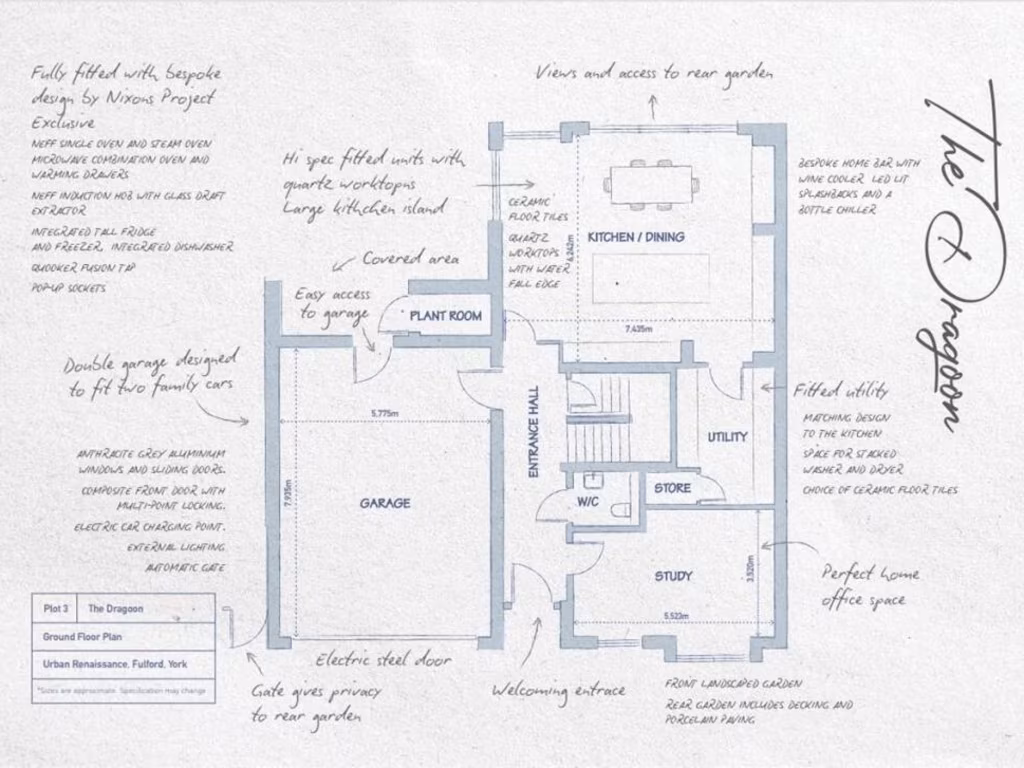 Fully fitted with bespoke
design by Nixons Project
Exclusive
NEFF SINGLE OVEN AND STEAM OVEN
MICROWAVE COMBINATION OVEN AND
WARMING DRAWERS
NEFF INDUCTION HOB WITH GLASS DRAFT
EXTRACTOR
INTEGRATED TALL FRIDGE
AND FREEZER, INTEGRATED DISHWASHER
QUOOKER FUSION TAP
POP-UP SOCKETS
Views and access to rear garden
Hi spec fitted units with
quartz worktopns
Large kithchen island
CERAMIC
FLOOR TILES
QUARTZ
WORKTOPS
WITH WATER
FALL EDGE
KITCHEN / DINING
6.242m
7.435m
BESPOKE HOME BAR WITH
WINE COOLER LED LIT
SPLASHBACKS AND A
BOTTLE CHILLER
The Dragoon
Covered area
Easy access
to garage
PLANT ROOM
Double garage designed
to fit two family cars
5.775m
7.935m
GARAGE
ENTRANCE HALL
UTILITY
STORE
W/C
STUDY
3.520m
5.523m
Fitted utility
MATCHING DESIGN
TO THE KITCHEN
SPACE FOR STACKED
WASHER AND DRYER
CHOICE OF CERAMIC FLOOR TILES
ANTHRACITE GREY ALUMINIUM
WINDOWS AND SLIDING DOORS.
COMPOSITE FRONT DOOR WITH
MULTI-POINT LOCKING.
ELECTRIC CAR CHARGING POINT.
EXTERNAL LIGHTING
AUTOMATIC GATE
Perfect home
office space
Plot 3 The Dragoon
Ground Floor Plan
Urban Renaissance, Fulford, York
*Sizes are approximate. Specification may change
Electric steel door
Gate gives privacy
to rear garden
Welcoming entrace
FRONT LANDSCAPED GARDEN
REAR GARDEN INCLUDES DECKING AND
PORCELAIN PAVING